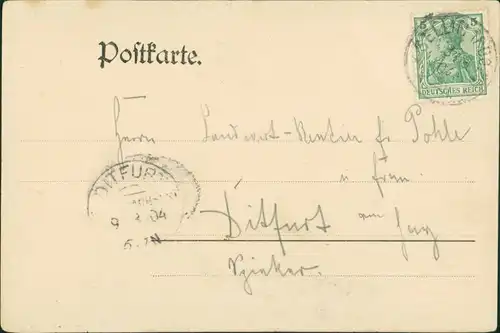 Postkarte.
5 5
DEUTSCHES REICH
Herrn Landwirt-Rentier Fr. Pohle
u Frau
DITFURT
9 04
5-  N
Ditfurt am Harz